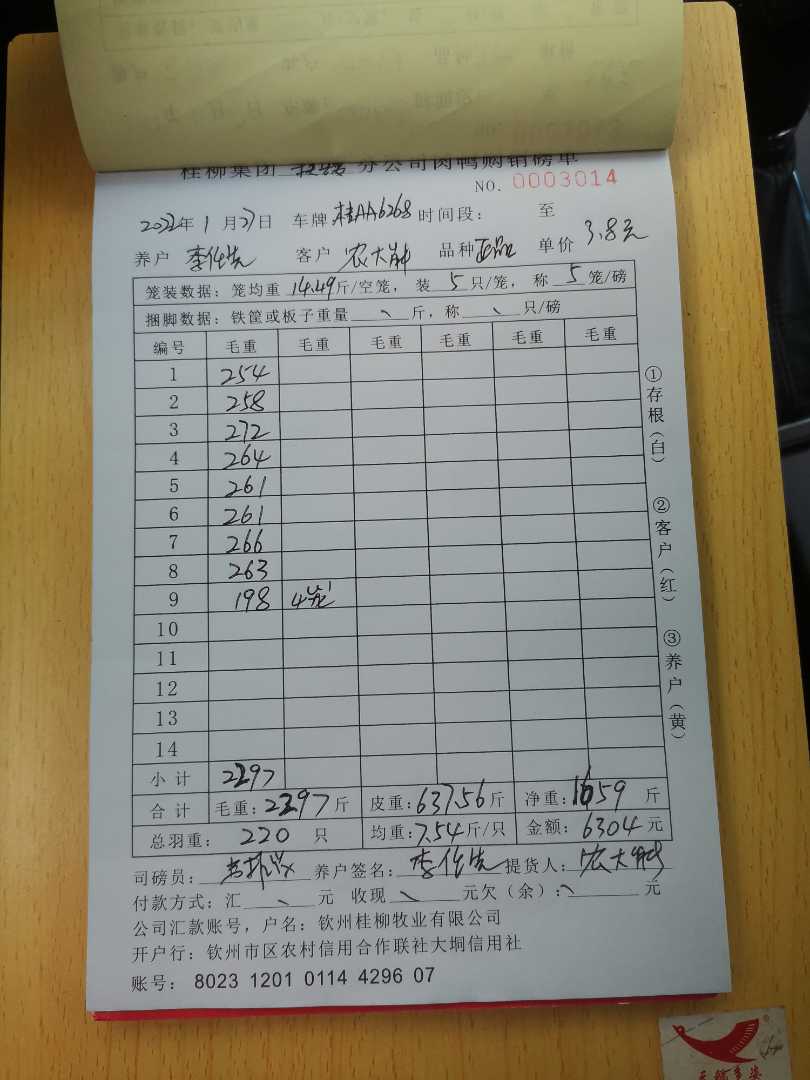 桂柳集团 分公司肉鸭购销磅单
NO. 0003014
2022年1月27日 车牌 桂AA6268 时间段： 至
养户 李任先 客户 农大胖 品种 正品 单价 3.8元
笼装数据：笼均重 14.49 斤/空笼， 装 5 只/笼， 称 5 笼/磅
捆脚数据：铁筐或板子重量 、 斤，称 、 只/磅
编号 毛重 毛重 毛重 毛重 毛重 毛重
1 254
2 258
3 272
4 264
5 261
6 261
7 266
8 263
9 198 4笼
10
11
12
13
14
小计 2297
合计 毛重：2297斤 皮重：637.56斤 净重：1659斤
总羽重： 220 只 均重：7.54斤/只 金额：6304元
司磅员： 养户签名：李任先 提货人：农大胖
付款方式：汇 、 元 收现 、 元欠（余）：、 元
公司汇款账号，户名：钦州桂柳牧业有限公司
开户行：钦州市区农村信用合作联社大垌信用社
账号： 8023 1201 0114 4296 07
①存根（白） ②客户（红） ③养户（黄）